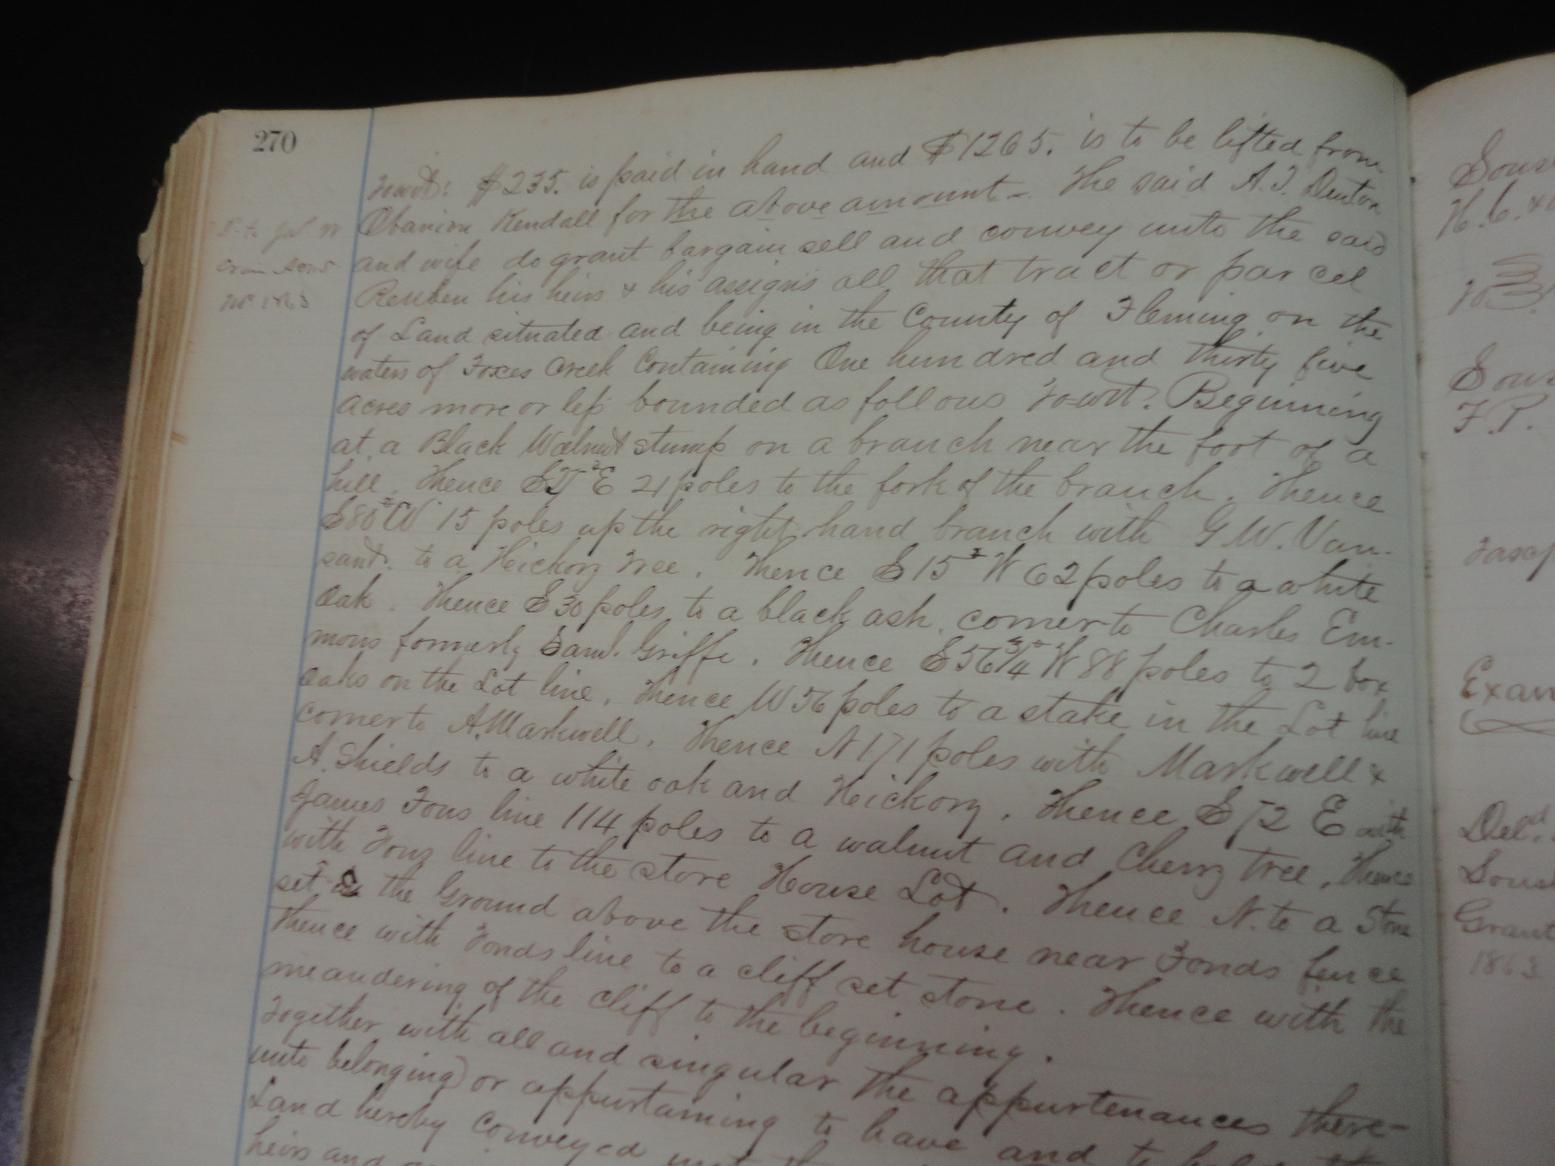 270
towit: $235. is paid in hand and $1265. is to be lifted from
Obanion Kendall for the above amount. The said A.J. Denton
and wife do grant bargain sell and convey unto the said
Reuben his heirs & his assigns all that tract or parcel
of Land situated and being in the County of Fleming on the
waters of Foxes Creek Containing One hundred and thirty five
acres more or less bounded as follows Towit. Beginning
at a Black Walnut stump on a branch near the foot of a
hill. Thence E 21 poles to the fork of the branch. Thence
S 80° W 15 poles up the right hand branch with G.W. Van-
sandt to a Hickory Tree. Thence S 15° W 62 poles to a white
Oak. Thence S 30 poles to a black ash corner to Charles Em-
mons formerly Saml. Griffe. Thence S 56 3/4 W 88 poles to 2 box
oaks on the Lot line. Thence W 56 poles to a stake in the Lot line
corner to A. Markwell. Thence N 171 poles with Markwell &
A. Shields to a white oak and Hickory. Thence S 72 E with
James line 114 poles to a walnut and Cherry tree. Thence
with line to the store House Lot. Thence N. to a Stone
set in the Ground above the store house near Fonds fence
thence with Fonds line to a cliff set stone. Thence with the
meandering of the cliff to the beginning.
Together with all and singular the appurtenances there-
unto belonging or appurtaining to have and to
Land hereby conveyed
heirs and
1863
Exam
Deld.
Grant
1863